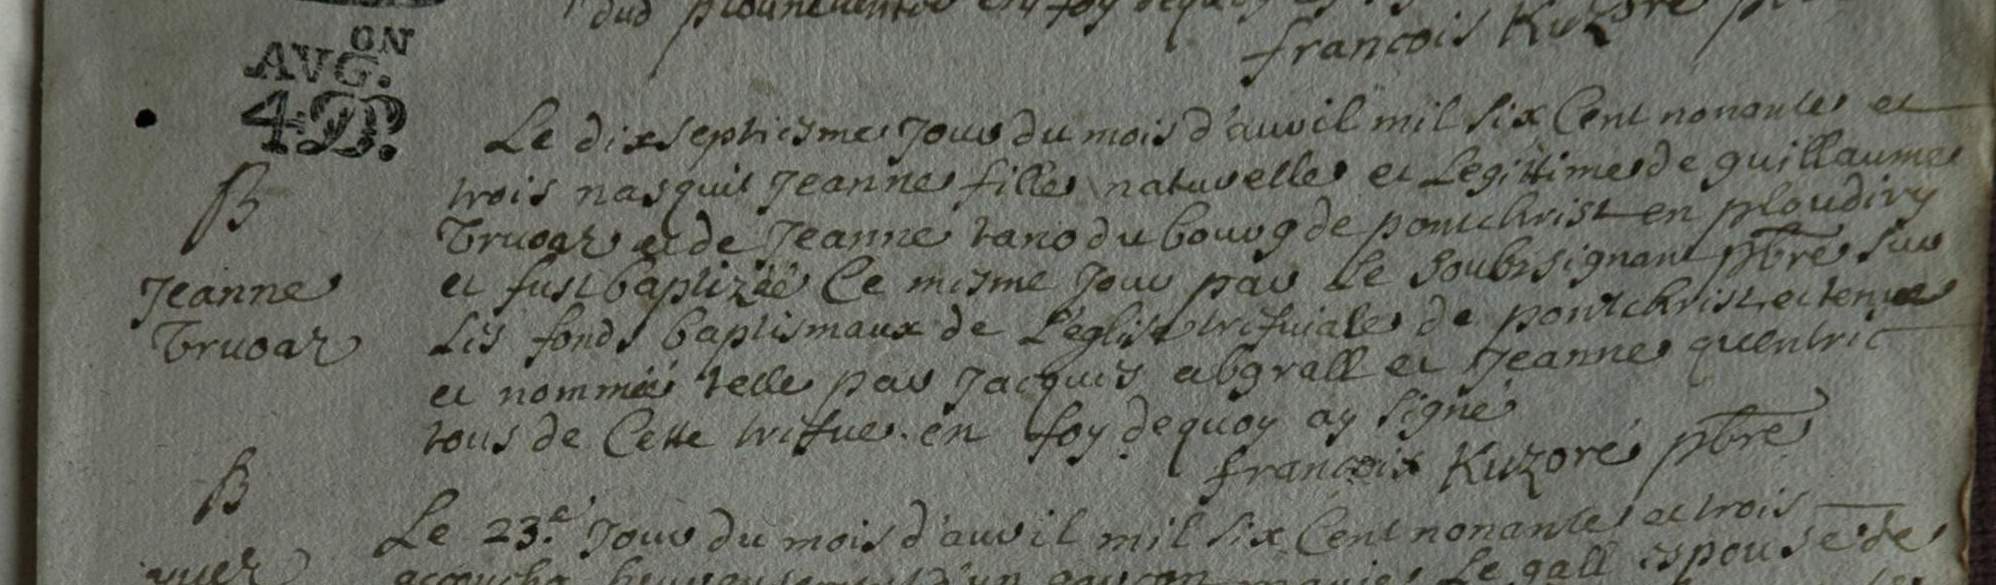 françois Kuzoré
ON
AVG.
4 D.
Le dixseptiesme Jour du mois d'auvril mil six Cent nonante et
trois nasquit Jeanne fille naturelle et Legittime de guillaume
B
Truoar et de Jeanne tano du bourg de pontchrist en ploudiry
et fust baptizée Ce mesme Jour par le soubzsignant pbre sur
Jeanne
Truoar
les fonds baptismaux de L'eglise trefuiale de pontchrist et tenue
et nommée telle par Jacques abgrall et Jeanne quentric
tous de Cette trefue. en foy dequoy ay signé
françoix Kuzoré pbre
B
Le 23.e Jour du mois d'auvril mil six Cent nonante et trois
accoucha heureusement d'un garcon marie Le gall espouse de